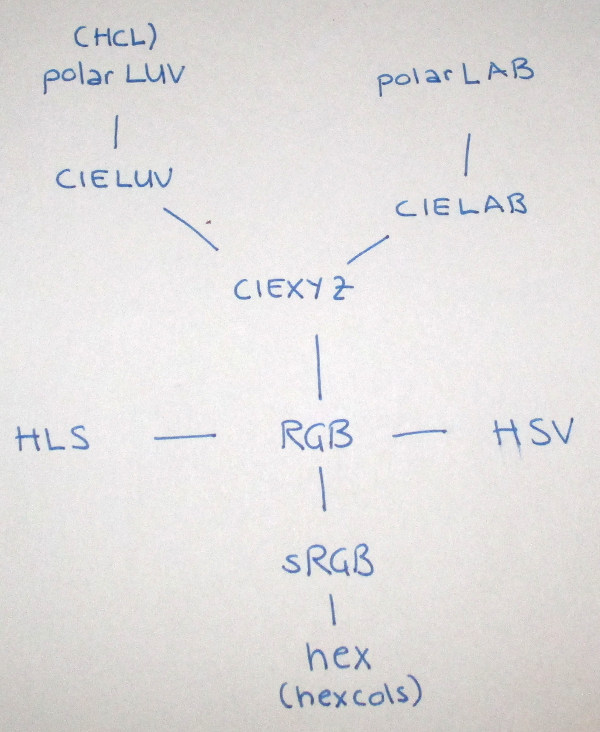 (HCL)
polar LUV
polar LAB
CIELUV
CIELAB
CIEXYZ
HLS
RGB
HSV
sRGB
hex
(hexcols)